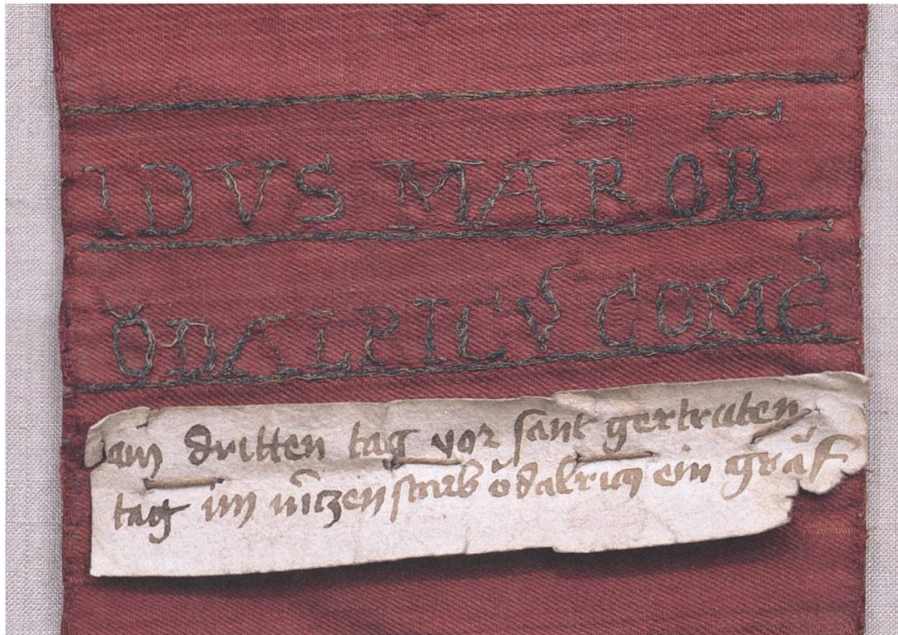 IDVS MAR̄ OB̄
ŎDALRICVS COMES
am dritten tag vor sant gertruten
tag im mĕrzen starb ŏdalricꝰ ein grăf